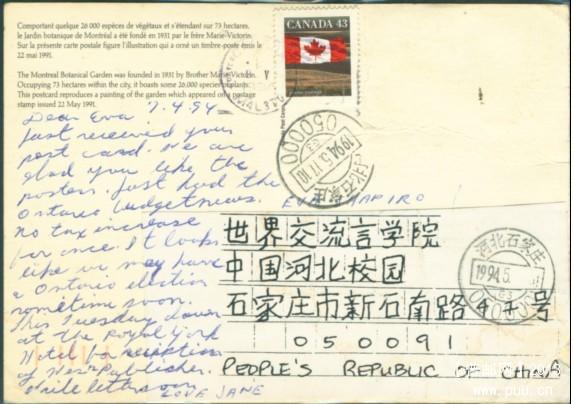 Comportant quelque 26 000 espèces de végétaux et s'étendant sur 73 hectares,
le Jardin botanique de Montréal a été fondé en 1931 par le frère Marie-Victorin.
Sur la présente carte postale figure l'illustration qui a orné un timbre-poste émis le
22 mai 1991.
The Montreal Botanical Garden was founded in 1931 by Brother Marie-Victorin.
Occupying 73 hectares within the city, it boasts some 26 000 species of plants.
This postcard reproduces a painting of the garden which appeared on a postage
stamp issued 22 May 1991.
CANADA 43
Dear Eva! 7.4.94
Just received your
post card. We are
glad you like the
posters. Just had the
Ontario budget news.
No tax increase
for once. It looks
like we may have
a Ontario election
sometime soon.
This Tuesday down
at the Royal York
Hotel for reception
of New Publisher.
Write letter soon
LOVE JANE
050000
1994.5.17.10
石家庄
EVA SHAPIRO
世界交流言学院
中国河北校园
石家庄市新石南路 47 号
050091
PEOPLE'S REPUBLIC OF China
河北石家庄
1994.5.
050000